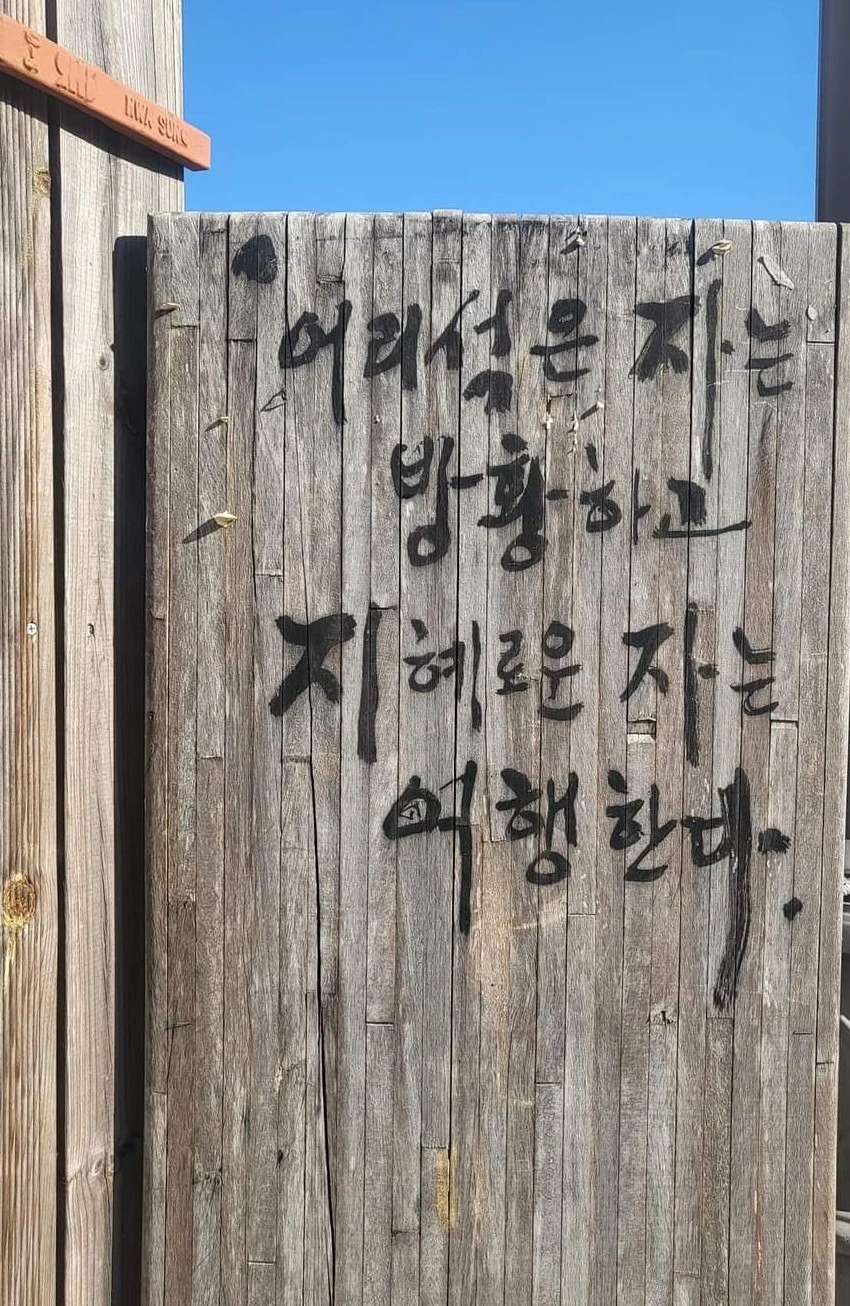 HWA SUNG
어리석은 자는
방황하고
지혜로운 자는
여행한다.